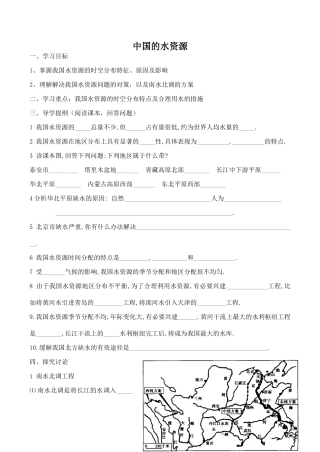 中国的水资源
一、学习目标
1、掌握我国水资源的时空分布特征、原因及影响
2、理解解决我国水资源问题的对策，以及南水北调的方案
二、学习重点：我国水资源的时空分布特点及合理用水的措施
三、导学提纲（阅读课本，回答问题）
1 我国水资源的____总量不少,但______占有量很低,约为世界人均水量的____.
2 我国水资源在地区分布上具有显著的______性,具体表现为__________,__________的特点.
3 读课本图,回答下列问题:下列地区属于什么带?
泰安市______ 塔里木盆地______ 青藏高原北部______ 长江中下游平原______
华北平原______ 内蒙古高原西部______ 东北平原西部______
4分析华北平原缺水的原因: 自然____________________人为____________
____________________________________.
5 北京市缺水严重,你有什么办法解决____________________________________
__.
6 我国水资源时间分配的特点是__________,____________和__________
7 受______气候的影响,我国水资源的季节分配和地区分配很不均匀.
8 由于我国水资源地区分布不平衡,为了合理开发和利用水资源,有必要兴建__________工程,比
如将黄河水引进青岛的________工程,将滦河水引入天津的__________工程.
9.我国水资源季节分配不均,年际变化大,有必要兴建________,目前我国黄河干流上最大的水利枢纽工程
是________,长江干流上的____水利枢纽完工后,将成为我国最大的水库.
10.缓解我国北方缺水的有效途径是____________________________.
四、探究讨论
1 南水北调工程
⑴南水北调是将长江的水调入____